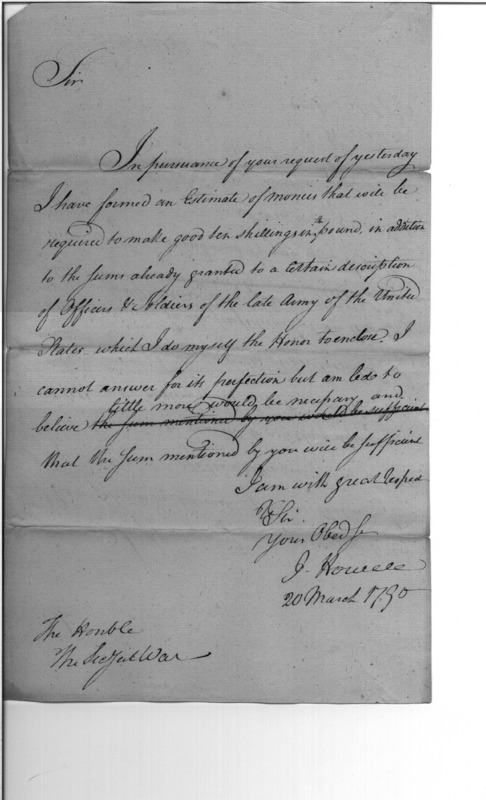 Sir
In pursuance of your request of yesterday
I have formed an Estimate of monies that will be
required to make good ten shillings in the pound, in addition
to the sums already granted to a certain description
of Officers & Soldiers of the late Army of the United
States, which I do myself the Honor to enclose. I
cannot answer for its perfection but am led to
little more would be necessary and
believe the sum mentioned by you would be sufficient
that the sum mentioned by you will be sufficient
I am with great respect
Sir
Your Obed Se
J. Howell
20 March 1790
The Honble
The Secy at War